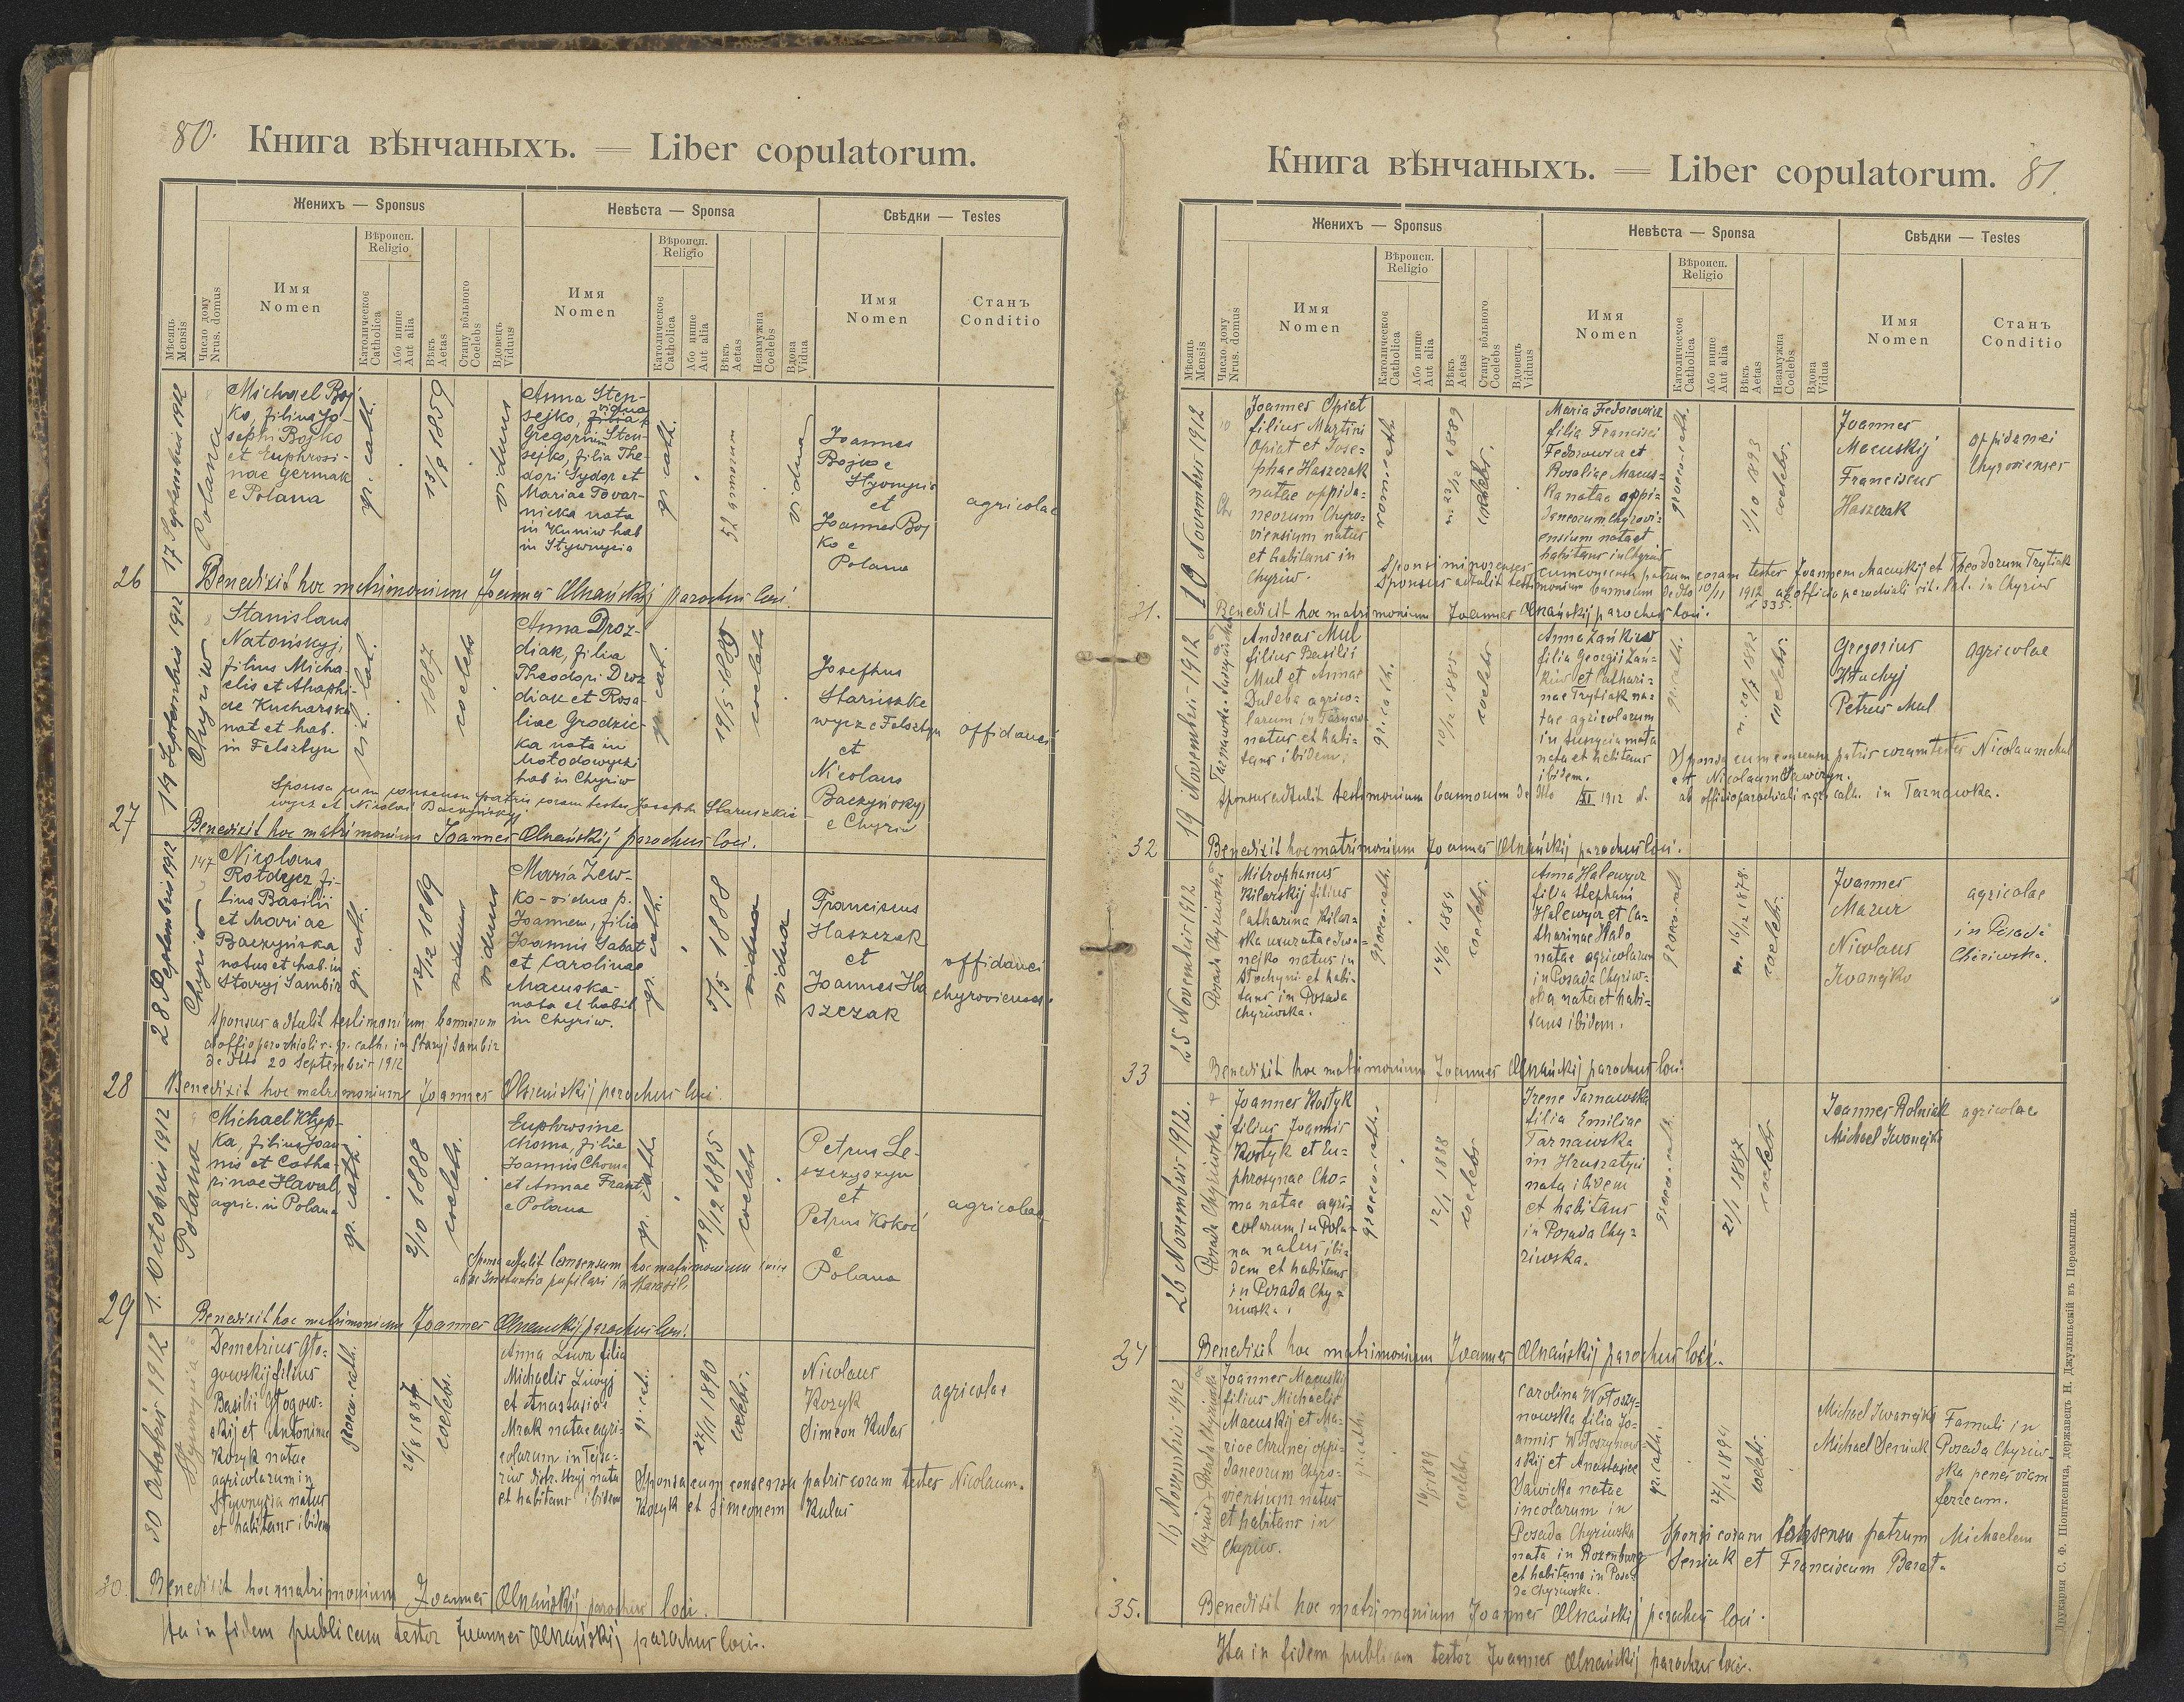 80.
Книга вѣнчаныхъ. — Liber copulatorum.
Женихъ — Sponsus
Невѣста — Sponsa
Свѣдки — Testes
Мѣсяць Mensis
Число дому Nrus. domus
Имя Nomen
Вѣроисп. Religio
Католическое Catholica
Або инше Aut alia
Вѣкъ Aetas
Стану вôльного Coelebs
Вдовець Viduus
Имя Nomen
Вѣроисп. Religio
Католическое Catholica
Або инше Aut alia
Вѣкъ Aetas
Незамужна Coelebs
Вдова Vidua
Имя Nomen
Станъ Conditio
26
17 Septembris 1912
Polana
Michael Boj-
ko, filius Jo-
sephi Bojko
et Euphrosi-
nae Germak
e Polana
gr. cath.
13/9 1859
viduus
Anna Sten-
sejko, vidua p.
Gregorium Sten-
sejko, filia The-
dori Sydor et
Mariae Tovar-
nicka nata
in Kuniw hab
in Stywnycia
gr. cath.
52 annorum
vidua
Joannes
Bojko e
Stywnycia
et
Joannes Boj
ko e
Polana
agricolae
Benedixit hoc matrimonium Joannes Olsnańskij parochus loci.
27
14 Septembris 1912
Chyriw
Stanislaus
Natońskyj,
filius Micha-
elis et Ahaphi-
ae Kucharska
nat et hab.
in Felsztyn
rit. lat.
1887
coelebs
Anna Droz-
diak, filia
Theodori Droz
diak et Rosa-
liae Grodzic-
ka nata in
Mołodowyczi
hab in Chyriw
gr. cat.
19/5 1889
coelebs
Josephus
Staruszke
wycz e Felsztyn
et
Nicolaus
Baczyńskyj
e Chyriw
offidanei
Sponsa cum consensu patris coram testes Josepho Staruszkie-
wycz et Nicolai Baczyńskyj
Benedixit hoc matrimonium Joannes Olsnańskij parochus loci.
28
28 Septembris 1912
147
Chyriw
Nicolaus
Rotdycz, fi-
lius Basilii
et Mariae
Baczyńska
natus et hab. in
Staryj Sambir
gr. cath.
13/12 1869
viduus
viduus
Maria Lew-
ko-vidua p.
Joannem, filia
Joannis Sabat
et Carolinae
Macuska
nata et habit
in Chyriw.
gr. cath.
5/5 1888
vidua
vidua
Franciscus
Haszczak
et
Joannes Ha
szczak
offidanei
chyrovienses
Sponsus adtulit testimonium bannorum
ab offici parochiali r. gr. cath. in Staryj Sambir
de dto 20 Septembris 1912
Benedixit hoc matrimonium Joannes Olsnańskij parochus loci.
29
1. Octobris 1912
Polana
Michael Kłyp-
ka, filius Joan-
nis et Catha-
rinae Haval
agric. in Polana
gr. cath.
2/10 1888
coelebs.
Euphrosine
Choma, filia
Joannis Choma
et Annae Frant
e Polana
gr. cath.
19/12 1895
coelebs
Petrus Le-
szczyszyn
et
Petrus Kokoć
e
Polana
agricolae
Sponsa adtulit Consensum hoc matrimonium
ab Instantia pupilari in
Benedixit hoc matrimonium Joannes Olsnańskij parochus loci.
30.
30 Octobris 1912
Stywnycia
Demetrius Gło-
gowskij filius
Basilii Głogow-
skij et Antoninae
Kozyk natae
agricolarum in
Stywnycia natus
et habitans ibidem
graeco-cath.
26/8 1887
coelebs.
Anna Liwa filia
Michaelis Liwyj
et Anastasiae
Mrak natae agri-
colarum in
distr. Stryj nata
et habitans ibidem
gr. cat.
27/11 1890
coelebs.
Nicolaus
Kozyk
Simeon Kulas
agricolae
Sponsa cum consensu patris coram testes Nicolaum
Kozyk et Simeonem Kulas
Benedixit hoc matrimonium Joannes Olsnańskij parochus loci.
Ita in fidem publicam testor Joannes Olsnańskij parochus loci.
Книга вѣнчаныхъ. — Liber copulatorum.
81.
Женихъ — Sponsus
Невѣста — Sponsa
Свѣдки — Testes
Мѣсяць Mensis
Число дому Nrus. domus
Имя Nomen
Вѣроисп. Religio
Католическое Catholica
Або инше Aut alia
Вѣкъ Aetas
Стану вôльного Coelebs
Вдовець Viduus
Имя Nomen
Вѣроисп. Religio
Католическое Catholica
Або инше Aut alia
Вѣкъ Aetas
Незамужна Coelebs
Вдова Vidua
Имя Nomen
Станъ Conditio
31.
10 Novembris 1912
Joannes Opiat
filius Martini
Opiat et Jose-
phae Haszczak
natae oppida-
neorum Chyro-
viensium natus
et habitans in
Chyriw.
rom. cath
n. 23/12 1889
coelebs.
Maria Fedorowicz
filia Francisci
Fedorowicz et
Rosaliae Macus-
ka natae oppi-
daneorum Chyrovi-
ensium nata et
habitans in Chyriw
graeco-cath.
1/10 1893
coelebs.
Joannes
Macuskij
Franciscus
Haszczak
oppidanei
Chyrovienses
Sponsi minorenses cum consensu patrum coram testes Joannem Macuskij et Theodorum Trytiak
Sponsus adtulit testimonium bannorum de dto 10/11 1912 № 335 ab officio parochiali rit. lat. in Chyriw
Benedixit hoc matrimonium Joannes Olsnańskij parochus loci.
32
19 Novembris 1912
Andreas Mul
filius Basilii
Mul et Annae
Duleba agrico-
larum in Tarnaw.
natus et habi-
tans ibidem.
gr. cath.
10/12 1885
coelebs
Anna Łańkiw
filia Georgii Łań-
kiw et Cathari-
nae Trytiak na-
tae agricolarum
in Suszycia
nata et habitans
ibidem.
gr. cath.
n. 20/7 1892
coelebs.
Gregorius
Hłuchyj
Petrus Mul
agricolae
Sponsa cum consensu patris coram testes Nicolaum Mul
et Nicolaum Ławczyn.
Sponsus adtulit testimonium bannorum de dto XI 1912 ab officio parochiali r. gr. cath. in Tarnawka.
Benedixit hoc matrimonium Joannes Olsnańskij parochus loci.
33
25 Novembris 1912
Posada Chyriwska
Mitrophanus
Kilarskij filius
Catharina Kilar-
ska Iwa-
nejko natus in
Stochyni et habi-
tans in Posada
Chyriwska.
graeco-cath.
14/6 1884
coelebs.
Anna Halewycz
filia Stephani
Halewycz et Ca-
tharinae Halo
natae agricolarum
in Posada Chyriw-
ska nata et habi-
tans ibidem.
graeco-cat
n. 16/12 1878.
coelebs.
Joannes
Mazur
Nicolaus
Iwanejko
agricolae
in Posada
Chiriwska.
Benedixit hoc matrimonium Joannes Olsnańskij parochus loci.
34
26 Novembris 1912.
Posada Chyriwska.
Joannes Kostyk
filius Joannis
Kostyk et Eu-
phrosynae Cho-
ma natae agri-
colarum in Pola-
na natus ibi-
dem et habitans
in Posada Chy-
riwska.
graeco-cath.
12/1 1888
coelebs
Irene Tarnawska
filia Emiliae
Tarnawska
in Hruszatyci
nata ibidem
et habitans
in Posada Chy-
riwska.
graeco-cath.
21/1 1887
coelebs
Joannes Rolniak
Michael Iwanejko
agricolae
Benedixit hoc matrimonium Joannes Olsnańskij parochus loci.
35.
16 Novembris 1912
Chyriw - Posada Chyriwska
Joannes Macuskij
filius Michaelis
Macuskij et Ma-
riae Chrunej oppi-
daneorum Chyro-
viensium natus
et habitans in
Chyriw.
gr. cath.
16/5 1889
coelebs
Carolina Wołoszy-
nowska filia Jo-
annis Wołoszynow-
skij et Anastasiae
Sawicka natae
incolarum in
Posada Chyriwska
nata in Rozenburg
et habitans in Posa-
da Chyriwska.
gr. cath.
27/12 1894
coelebs.
Michael Iwanejko
Michael Seniuk
Famuli in
Posada Chyriw-
ska penes viam
ferream.
Sponsi coram consensu patrum Michaelem
Seniuk et Franciscum Barat.
Benedixit hoc matrimonium Joannes Olsnańskij parochus loci.
Ita in fidem publicam testor Joannes Olsnańskij parochus loci.
Друкарня С. Ф. Піонткевича, державець Н. Джулыньскій въ Перемышли.